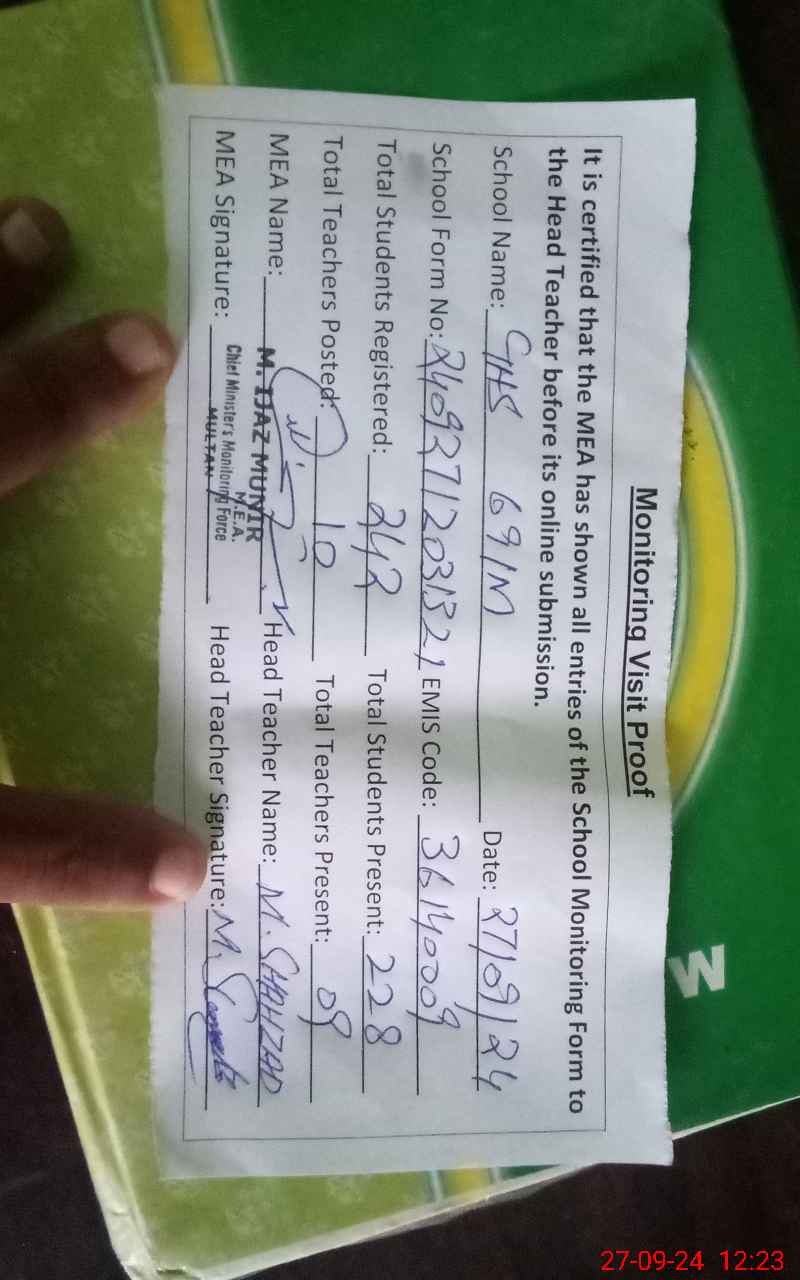 Monitoring Visit Proof
It is certified that the MEA has shown all entries of the School Monitoring Form to
the Head Teacher before its online submission.
School Name: GHS 69/M Date: 27/09/24
School Form No: 24092712031321 EMIS Code: 36140009
Total Students Registered: 242 Total Students Present: 228
Total Teachers Posted: 10 Total Teachers Present: 09
MEA Name: M. IJAZ MUNIR Head Teacher Name: M. SHAHZAD
M.E.A.
Chief Minister's Monitoring Force
MULTAN
MEA Signature: Head Teacher Signature: M.
W
27-09-24 12:23